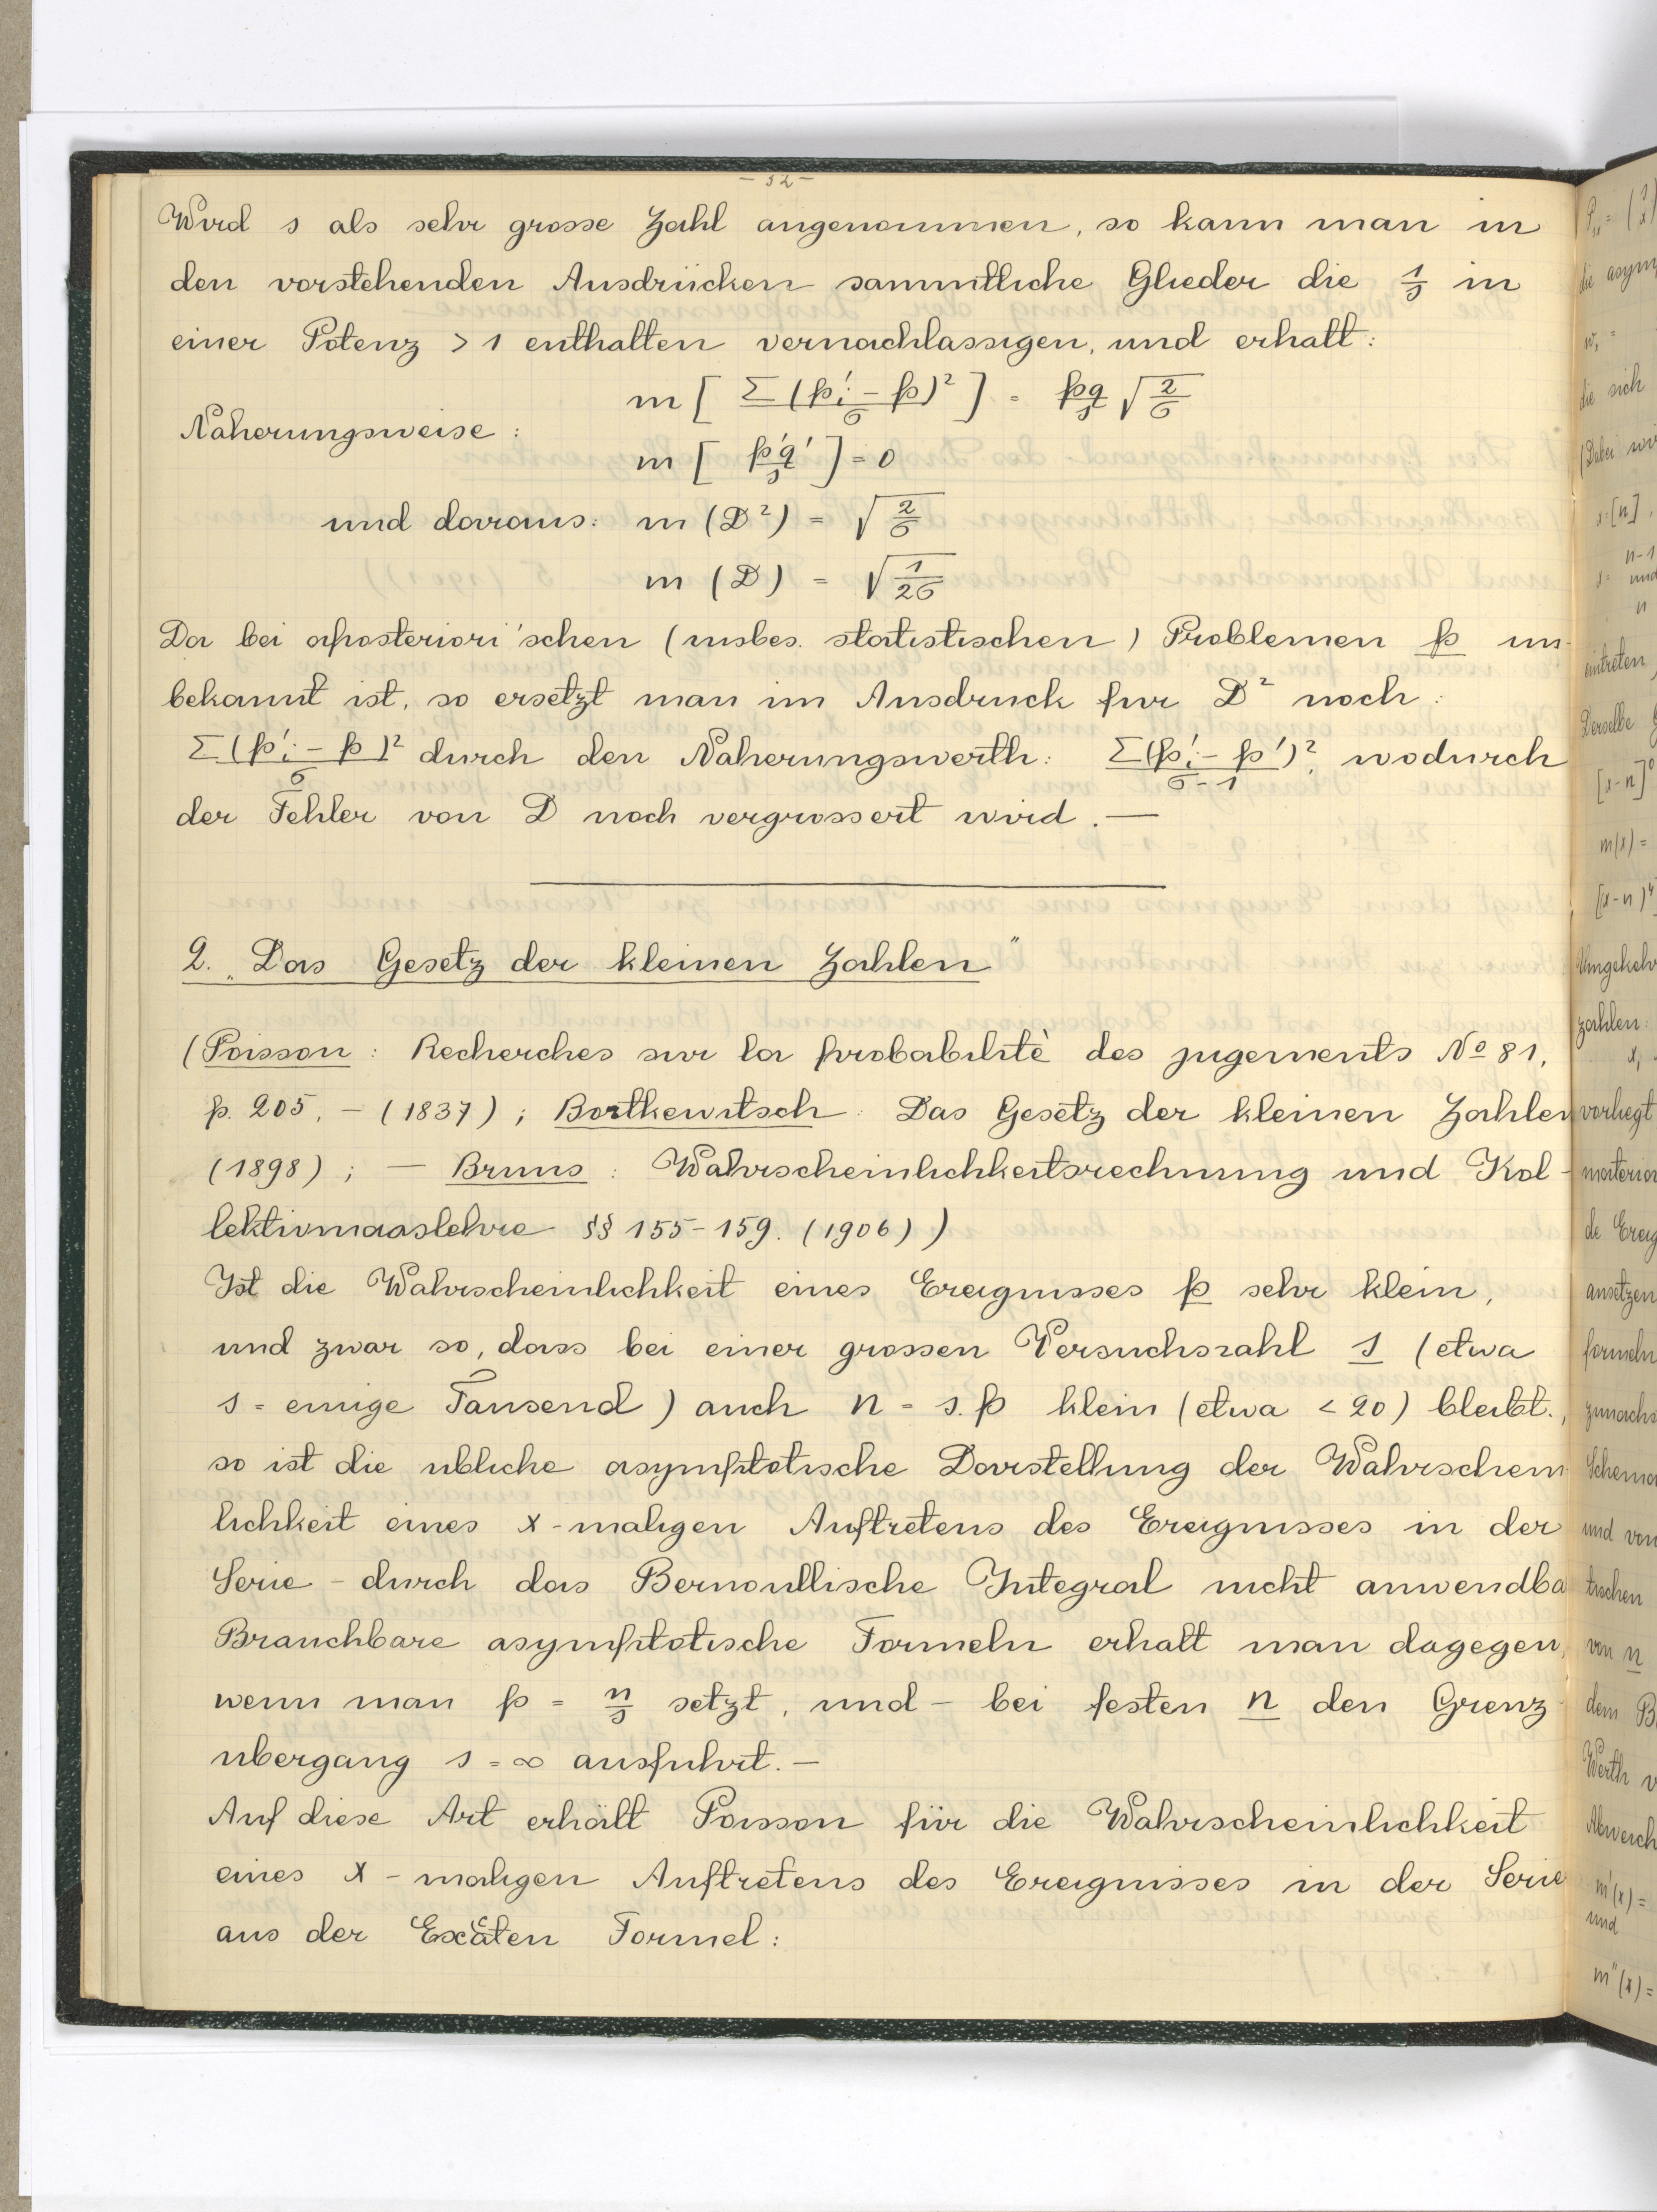 - 32 -
Wird s als sehr grosse Zahl angenommen, so kann man in
den vorstehenden Ausdrücken sammtliche Glieder die 1/s in
einer Potenz > 1 enthalten vernachlassigen, und erhalt:
m [ Σ(p'i - p)² / σ ] = pq/s √(2/σ)
Naherungsweise:
m [ p'q'/s ] = 0
und daraus: m (D²) = √(2/σ)
m (D) = √(1/2σ)
Da bei aposteriori'schen (insbes. statistischen) Problemen p un-
bekannt ist, so ersetzt man im Ausdruck fur D² noch:
Σ(p'i - p)²/σ durch den Naherungswerth: Σ(p'i - p')²/σ-1, wodurch
der Fehler von D noch vergrossert wird. —
2. „Das Gesetz der kleinen Zahlen"
(Poisson: Recherches sur la probabilitè des jugements No 81,
p. 205, - (1837); Bortkewitsch: Das Gesetz der kleinen Zahlen
(1898); — Bruns: Wahrscheinlichkeitsrechnung und Kol-
lektivmaaslehre §§ 155-159. (1906))
Ist die Wahrscheinlichkeit eines Ereignisses p sehr klein,
und zwar so, dass bei einer grossen Versuchszahl s (etwa
s = einige Tausend) auch n = s.p klein (etwa < 20) bleibt.,
so ist die ubliche asymptotische Darstellung der Wahrschein
lichkeit eines x-maligen Auftretens des Ereignisses in der
Serie - durch das Bernoullische Integral nicht anwendba
Brauchbare asymptotische Formeln erhalt man dagegen,
wenn man p = n/s setzt, und - bei festen n den Grenz-
ubergang s = ∞ ausfuhrt. —
Auf diese Art erhält Poisson für die Wahrscheinlichkeit
eines x-maligen Auftretens des Ereignisses in der Serie
aus der Excaten Formel:
die asym
die sich
(Dabei wir
s=[n]
n-1
und
n
eintreten,
Derselbe
[x-n]⁰
m(x) =
[x-n)⁴
Umgekehr
zahlen:
vorliegt
materia
de Ereig
ansetzen
formeln
zunachs
Schema
und von
tischen
von n
dem B
Werth v
Abweich
m'(x) =
und
m"(x) =